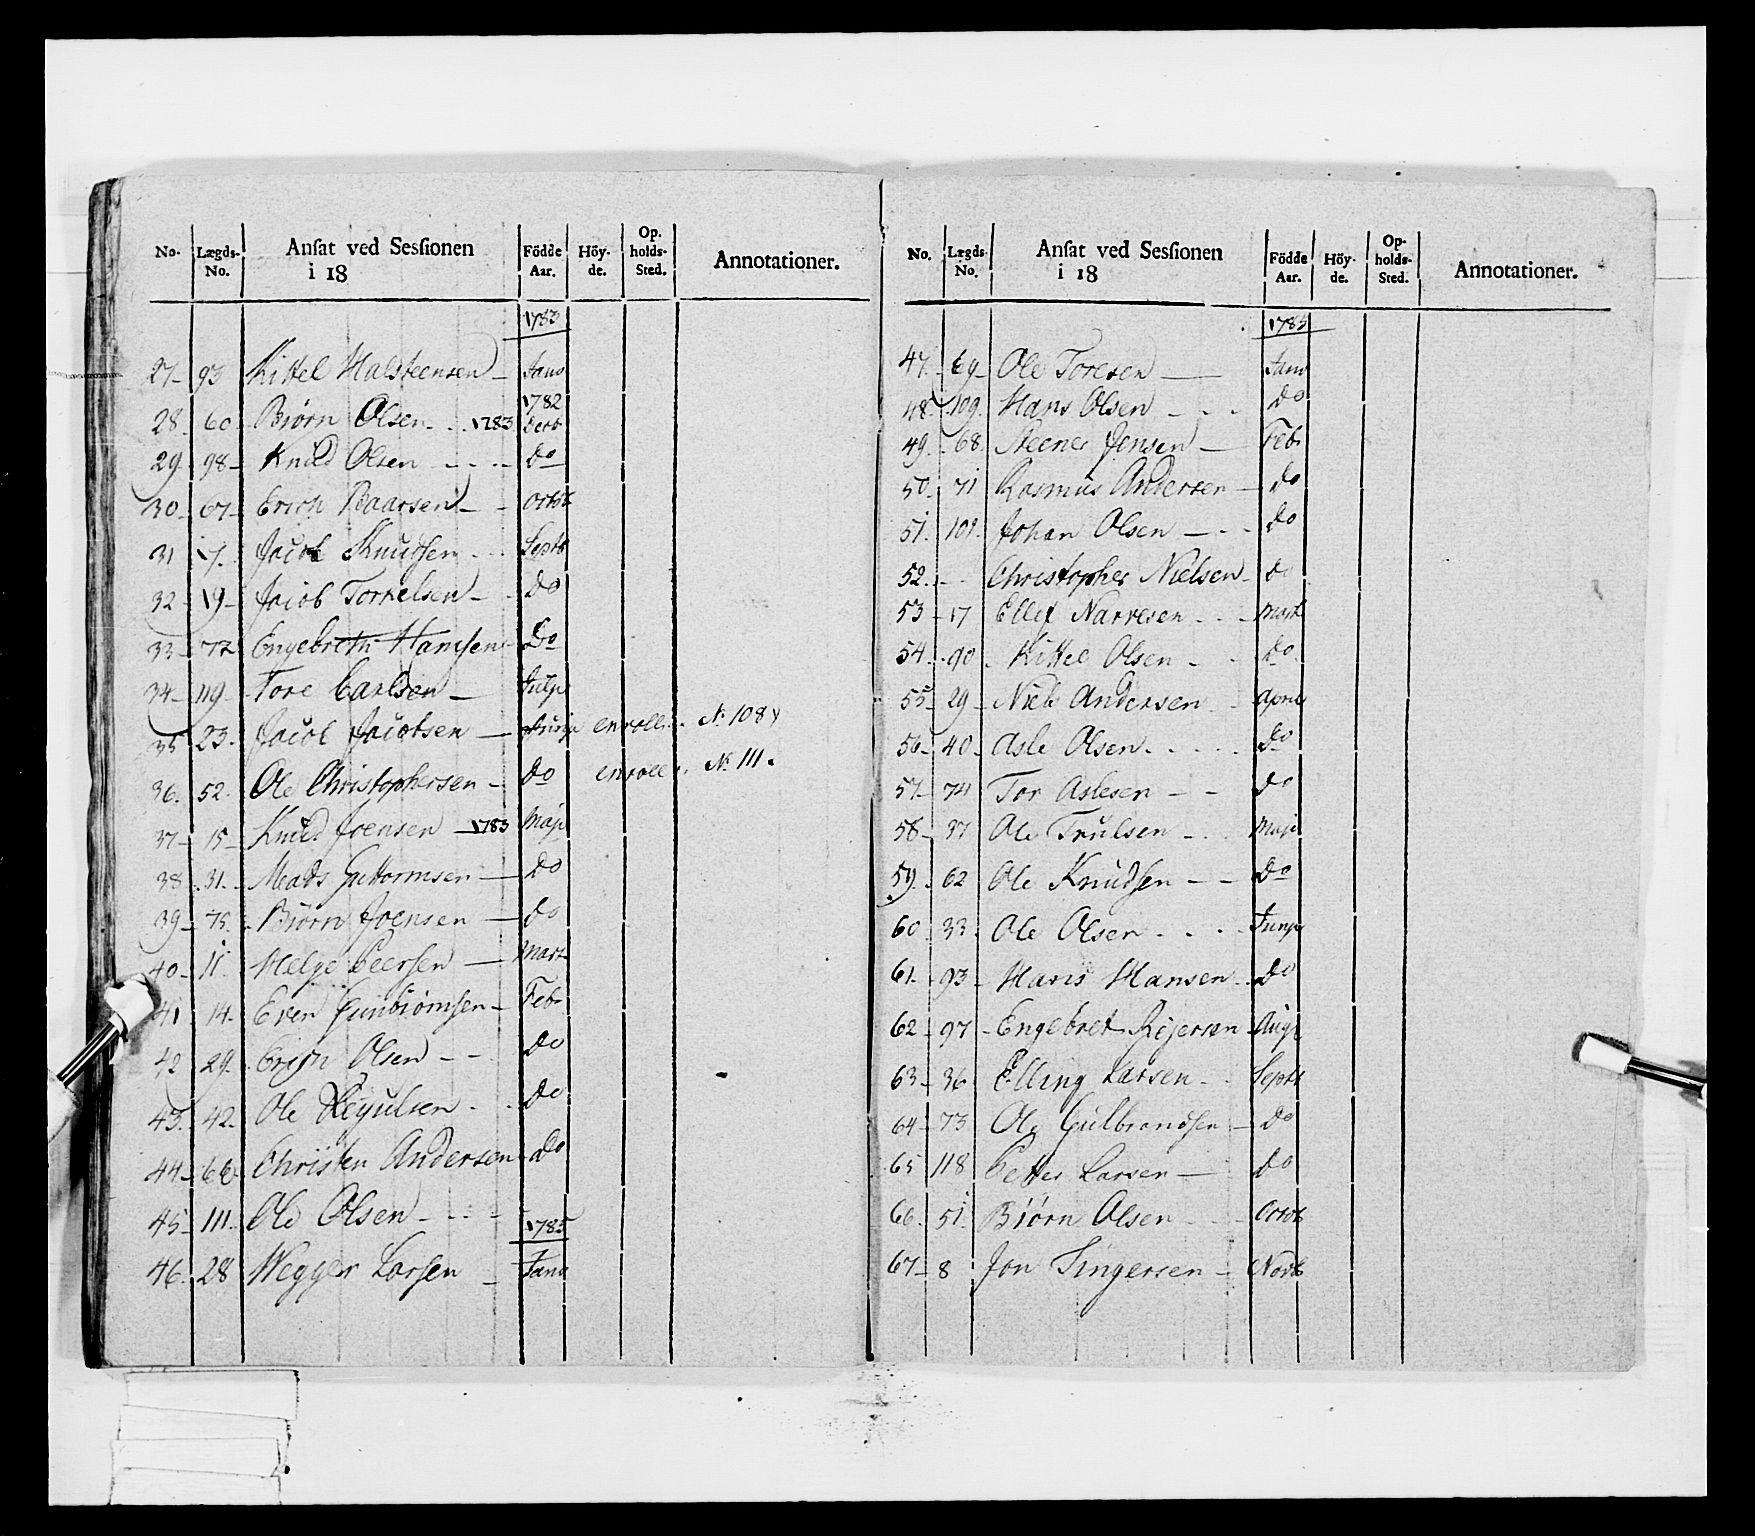 No. Lægds-No. Ansat ved Sessionen i 18 Födde Aar. Höy-de. Op-holds-Sted. Annotationer.
1783
27 93 Kittel Halsteensen Janv
1782
28 60 Biörn Olsen 1783 Decb
29 98 Knud Olsen Do
30 67 Erich Baarsen Octb
31 17 Jacob Knudsen Septb
32 19 Jacob Torkelsen Do
33 72 Engebreth Hansen Do
34 119 Tore Carlsen July
35 23 Jacob Jacobsen enroll. No 108
36 52 Ole Christophersen Do enroll. No 111.
37 15 Knud Joensen 1783 Maji
38 31 Mads Guttormsen Do
39 75 Biörn Joensen Do
40 11 Helge Peersen Mart
41 14 Even Gunbiörnsen Feb
42 29 Olsen Do
43 42 Ole Do
44 66 Christen Andersen Do
45 111 Ole Olsen
1785
46 28 Wegger Larsen Janv
No. Lægds-No. Ansat ved Sessionen i 18 Födde Aar. Höy-de. Op-holds-Sted. Annotationer.
1785
47 69 Ole Toresen Janv
48 109 Hans Olsen Do
49 68 Steener Jensen Feb
50 71 Rasmus Andersen Do
51 101 Johan Olsen Do
52 Christopher Nielsen Do
53 17 Ellef Narvesen Mart
54 90 Kittel Olsen Do
55 29 Niels Andersen April
56 40 Asle Olsen Do
57 74 Tor Aslesen Do
58 37 Ole Trulsen Maji
59 62 Ole Knudsen Do
60 33 Ole Olsen Juny
61 93 Hans Hansen Do
62 97 Engebret Reyersen Aug
63 36 Elling Larsen Septb
64 73 Ole Gulbrandsen Do
65 118 Petter Larsen Do
66 51 Biörn Olsen Octob
67 8 Jon Novb